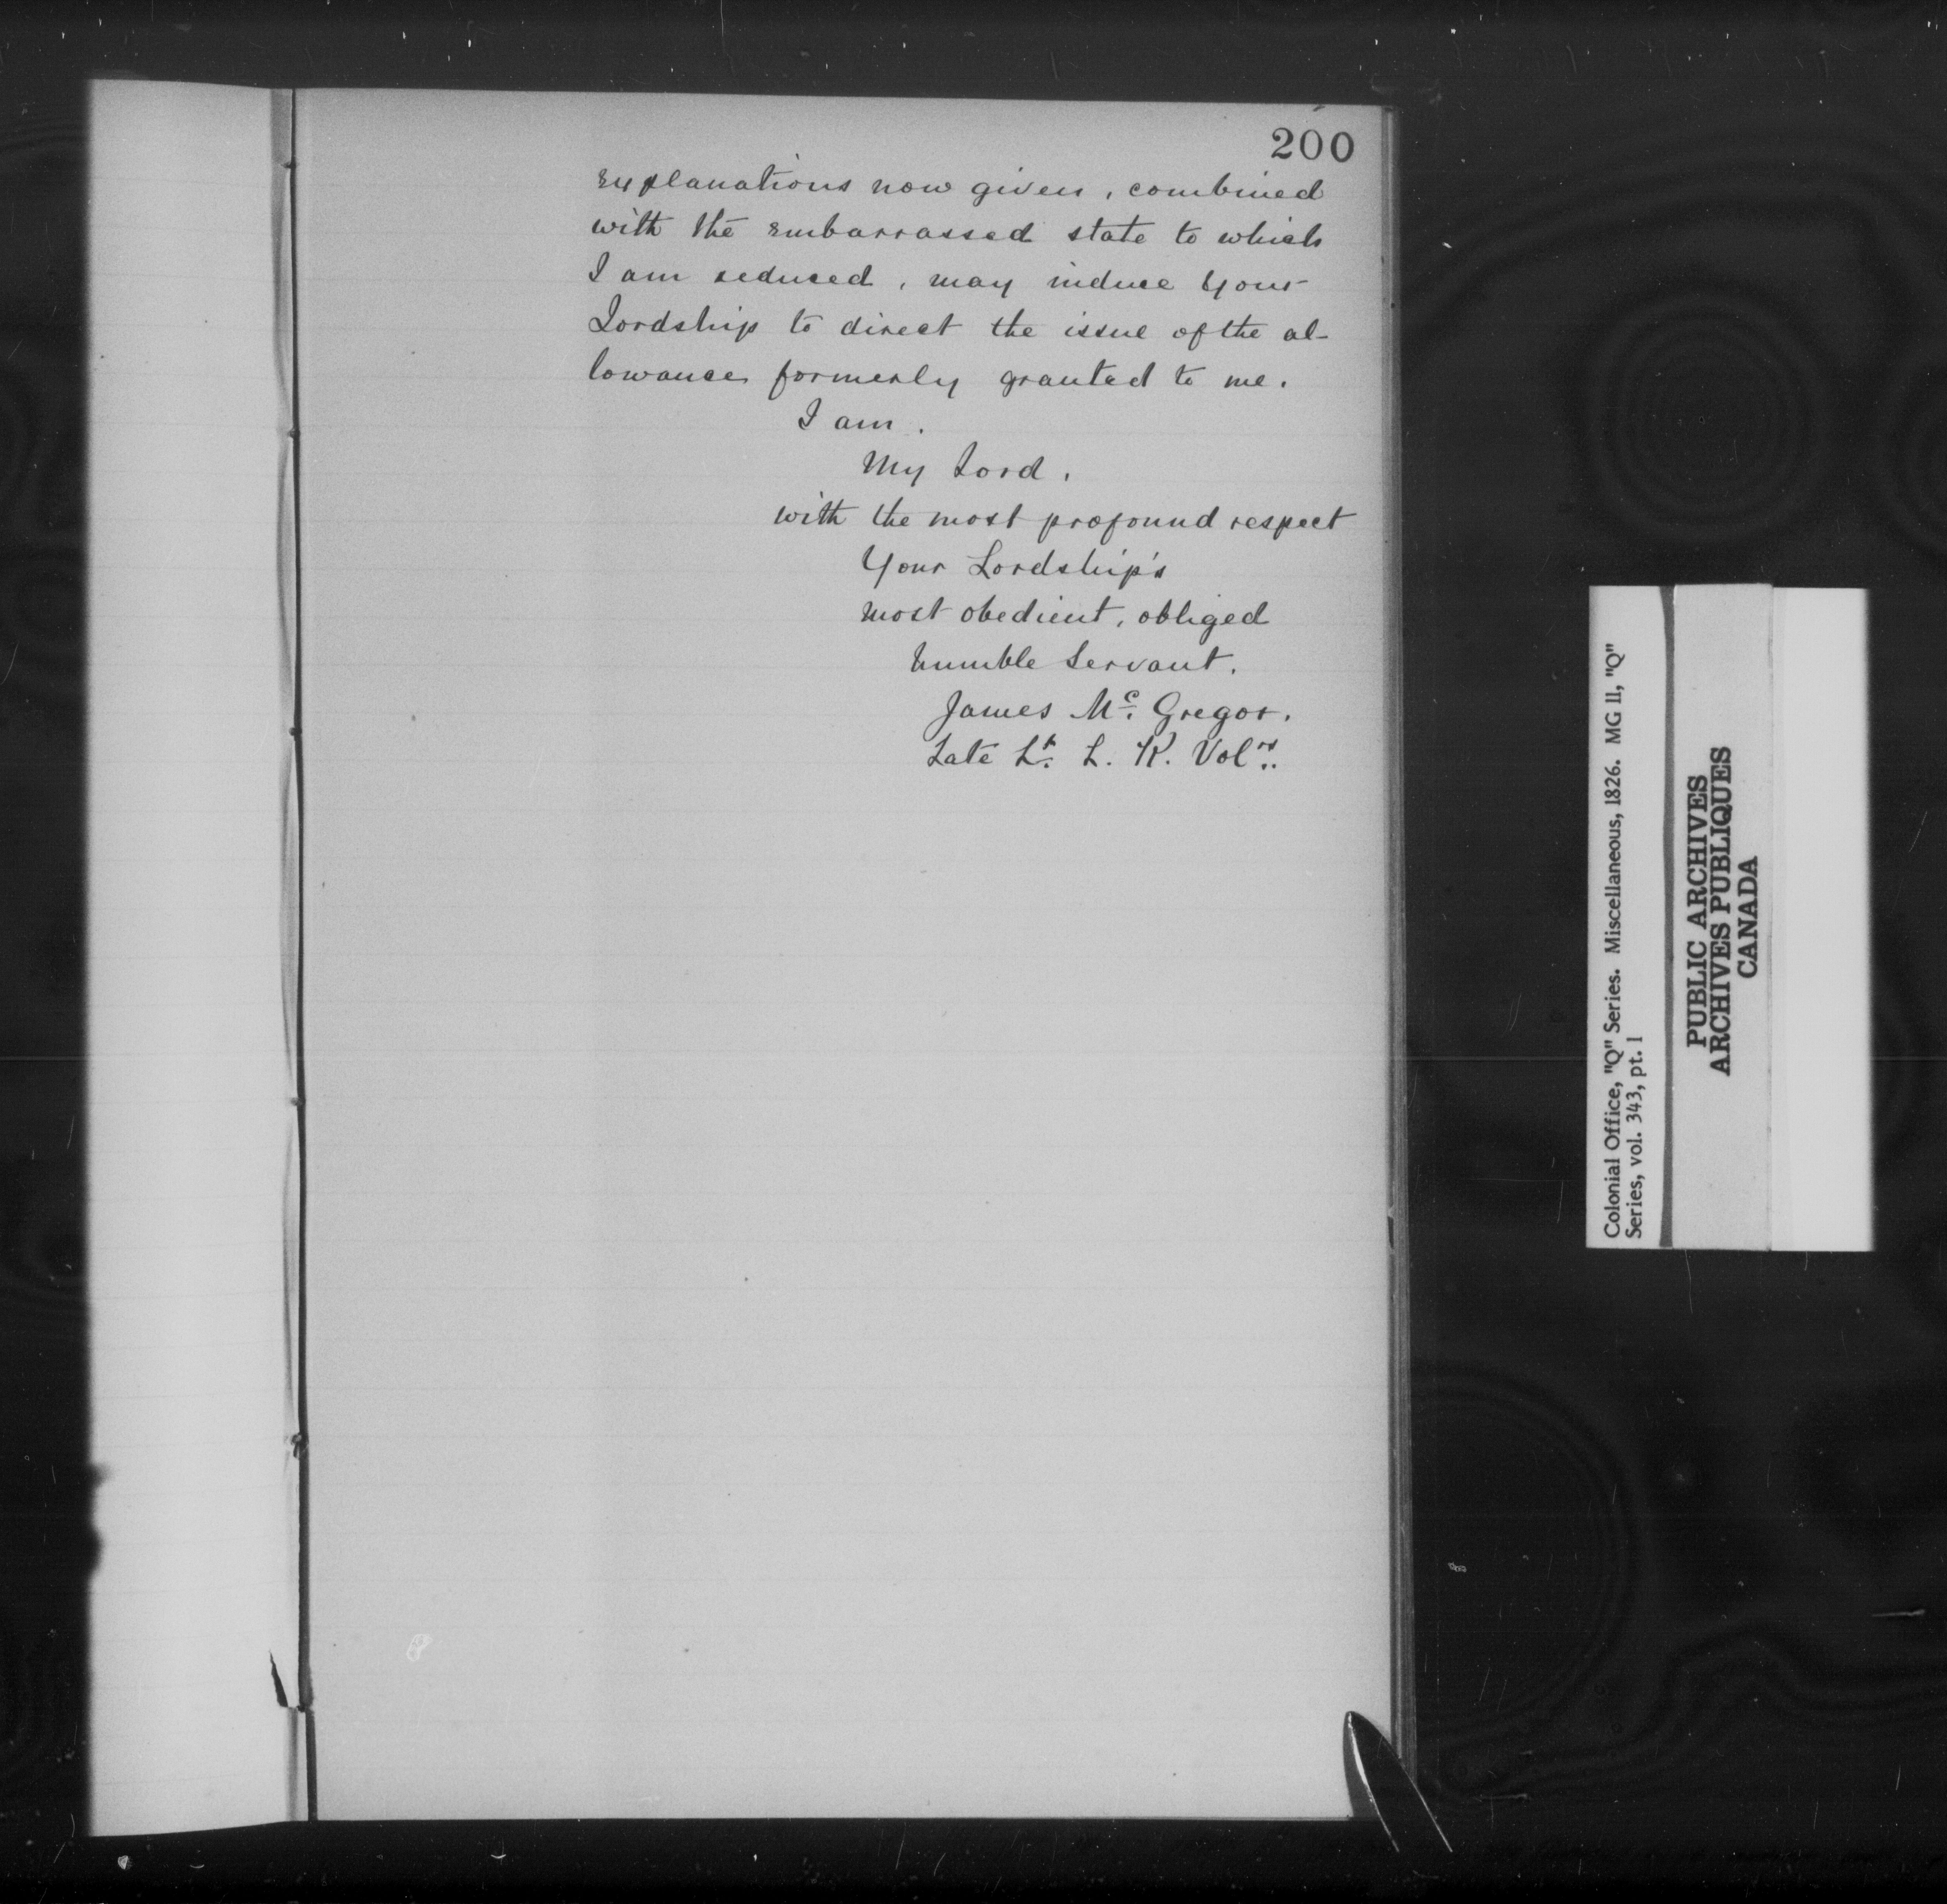 200
explanations now given, combined
with the embarrassed state to which
I am reduced, may induce your
Lordship to direct the issue of the al-
lowance formerly granted to me.
I am.
My Lord,
with the most profound respect
Your Lordship's
most obedient, obliged
humble Servant.
James Mc. Gregor.
Late Lt. L. K. Volrs.
Colonial Office, "Q" Series. Miscellaneous, 1826. MG 11, "Q"
Series, vol. 343, pt. 1
PUBLIC ARCHIVES
ARCHIVES PUBLIQUES
CANADA